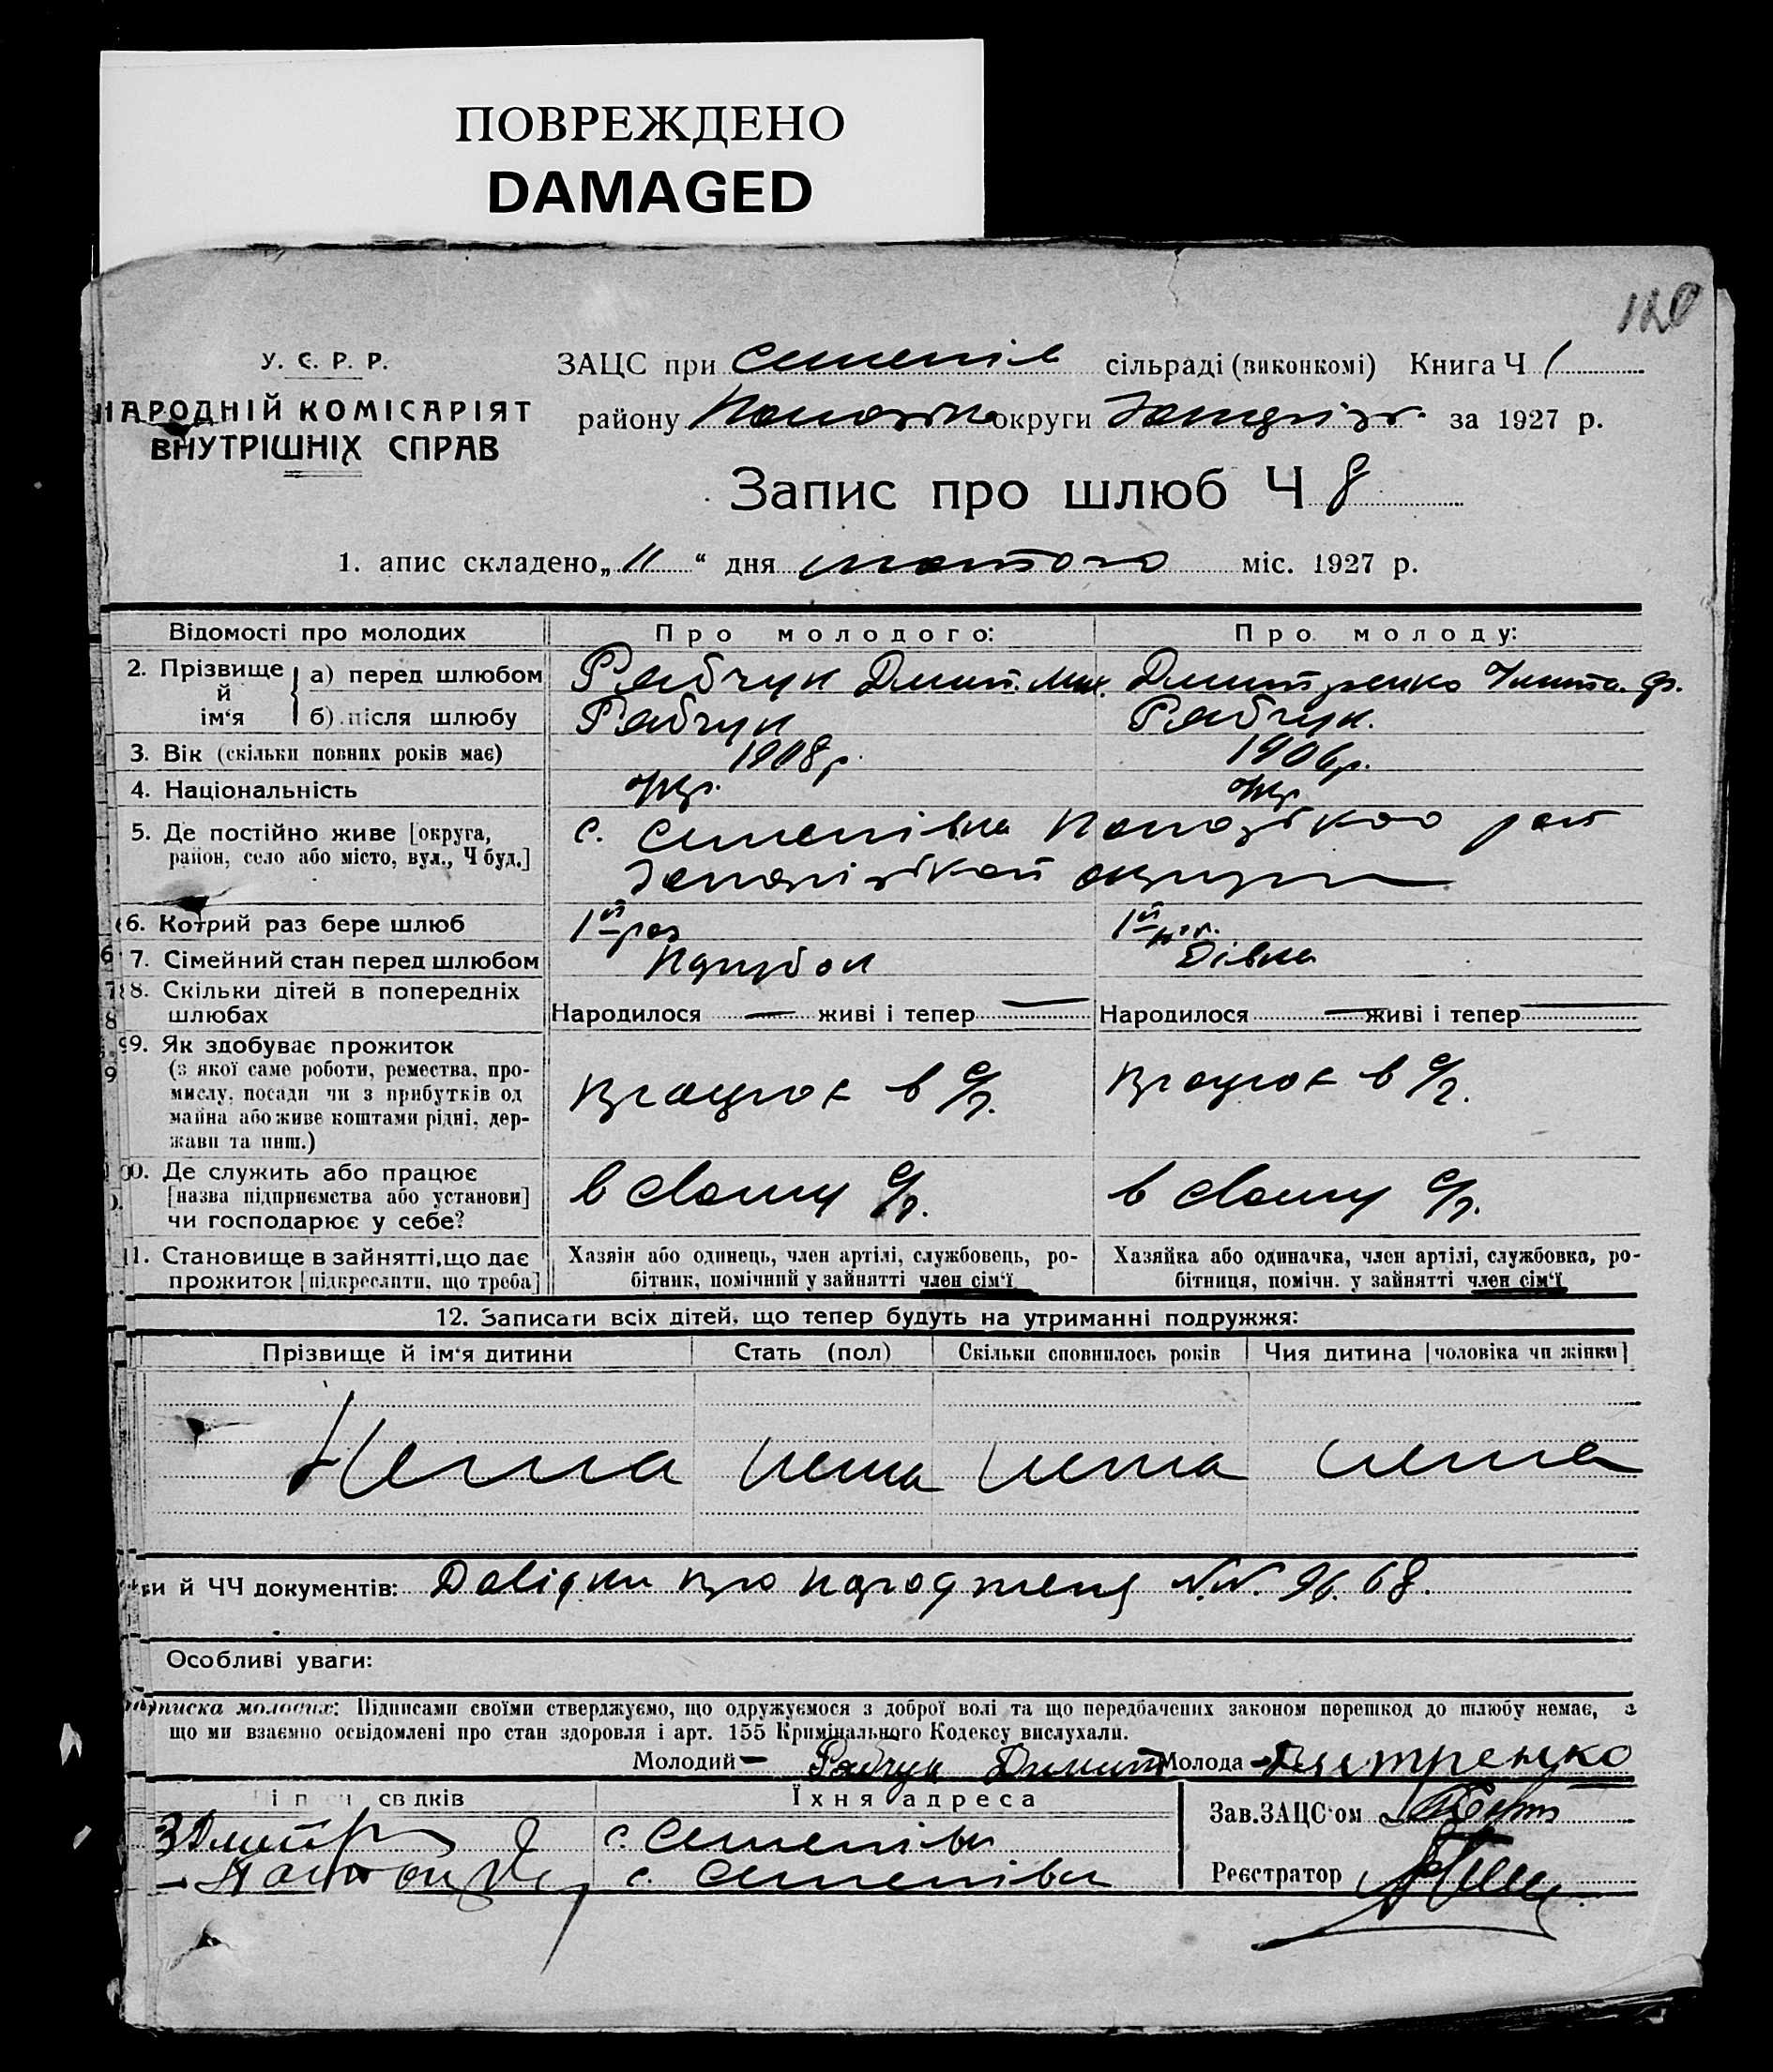 ПОВРЕЖДЕНО
DAMAGED
120
У. С. Р. Р.
НАРОДНІЙ КОМІСАРІЯТ
ВНУТРІШНІХ СПРАВ
ЗАЦС при Семенів сільраді (виконкомі) Книга Ч 1
району округи за 1927 р.
Запис про шлюб Ч 8
1. апис складено „ 11 “ дня лютого міс. 1927 р.
Відомості про молодих Про молодого: Про молоду:
2. Прізвище й ім‘я а) перед шлюбом Рябчук Дмит. Мих. Дмитренко
б) після шлюбу Рябчук Рябчук.
3. Вік (скільки повних років має) 1908 р. 1906 р.
4. Національність укр. укр.
5. Де постійно живе [округа, район, село або місто, вул., Ч буд.] с. Семенівка
округи
6. Котрий раз бере шлюб 1й раз 1й
7. Сімейний стан перед шлюбом Парубок Дівка
8. Скільки дітей в попередніх шлюбах Народилося — живі і тепер — Народилося — живі і тепер —
9. Як здобуває прожиток
(з якої саме роботи, ремества, про-
мислу, посади чи з прибутків од
майна або живе коштами рідні, дер-
жави та инш.) працює в с/г. працює в с/г.
10. Де служить або працює
[назва підприємства або установи]
чи господарює у себе? в свому с/г. в свому с/г.
11. Становище в зайнятті, що дає
прожиток [підкреслити, що треба]
Хазяїн або одинець, член артілі, службовець, ро-
бітник, помічний у зайнятті член сім‘ї
Хазяйка або одиначка, член артілі, службовка, ро-
бітниця, помічн. у зайнятті член сім‘ї
12. Записати всіх дітей, що тепер будуть на утриманні подружжя:
Прізвище й ім‘я дитини Стать (пол) Скільки сповнилось років Чия дитина [чоловіка чи жінки]
Нема нема нема нема
ви й ЧЧ документів: Довідки про народження N.N. 96. 68.
Особливі уваги:
писка молодих: Підписами своїми стверджуємо, що одружуємося з доброї волі та що передбачених законом перешкод до шлюбу немає, а
що ми взаємно освідомлені про стан здоровля і арт. 155 Кримінального Кодексу вислухали.
Молодий – Рябчук Дмит Молода – Дмитренко
свідків Їхня адреса
с. Семенівка
с. Семенівка
Зав. ЗАЦС‘ом
Реєстратор